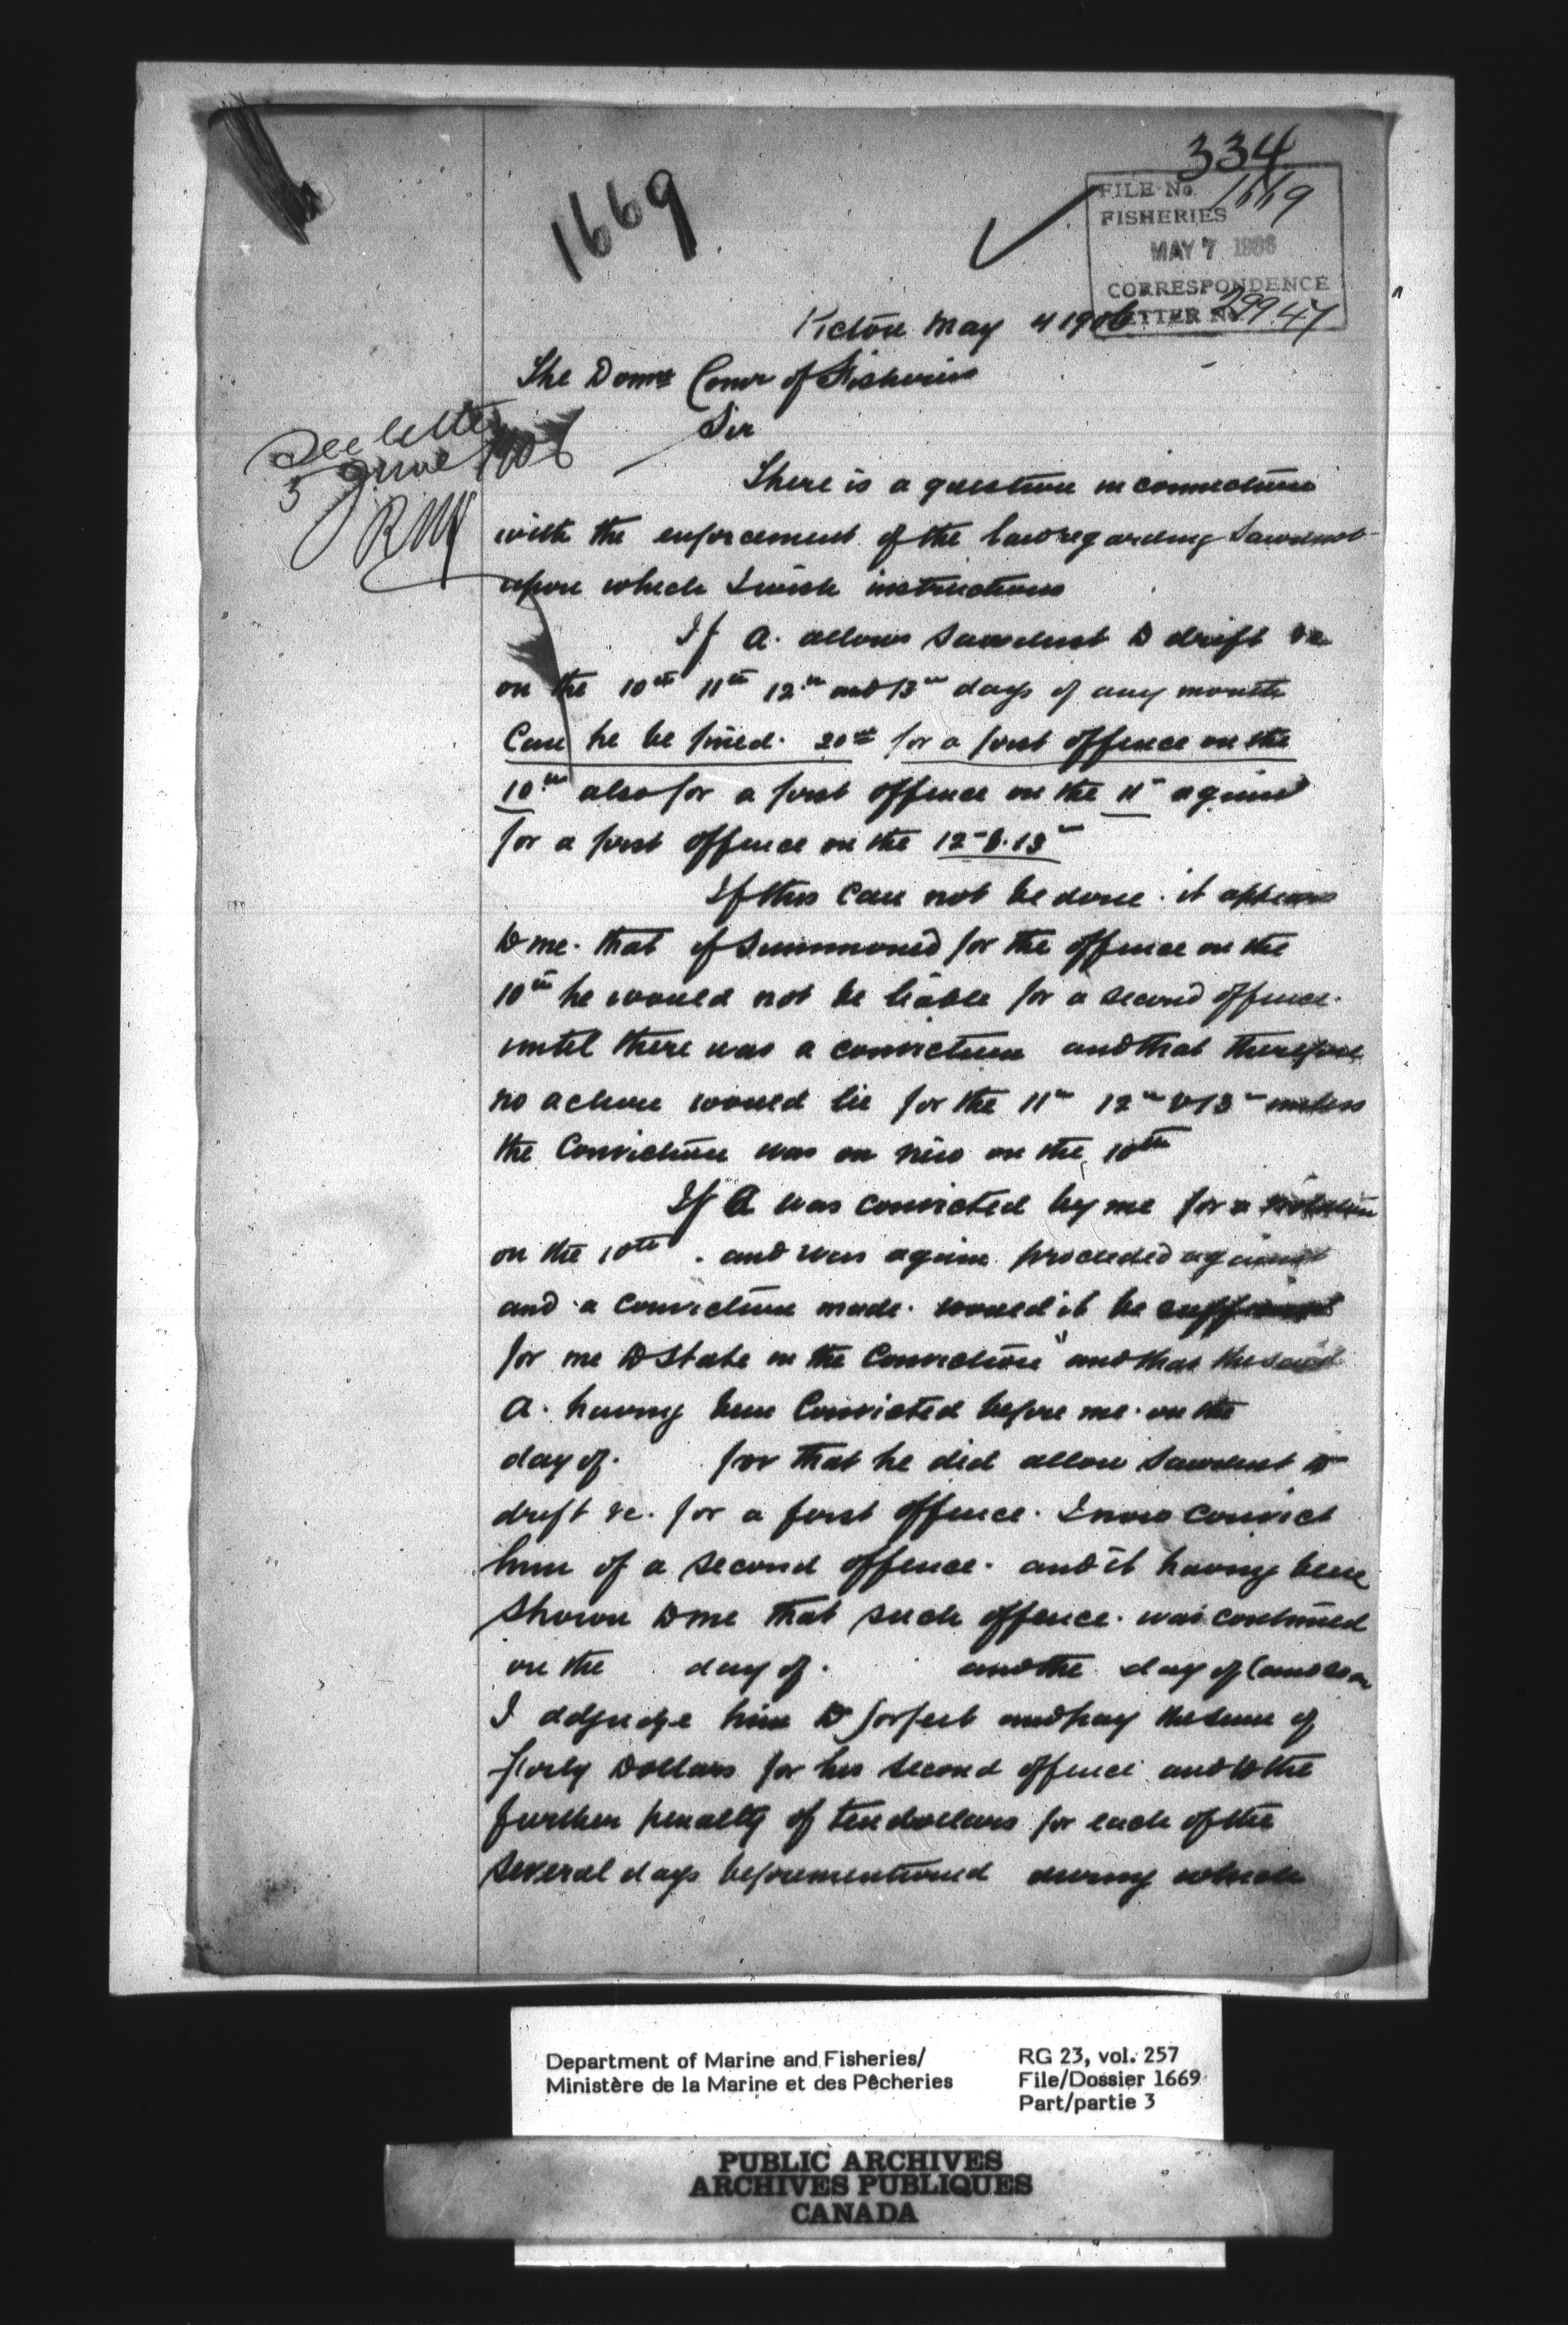 334
1669
FILE No. 1669
FISHERIES
MAY 7 1906
CORRESPONDENCE
LETTER No 29947
Pictou May 4 1906
The Domn Comr of Fisheries
Sir
See letter
5 June 1906
There is a question in connection
with the enforcement of the law regarding Sawdust
upon which I wish instructions
If A. allows Sawdust to drift &c
on the 10th 11th 12th and 13th days of any month
Can he be fined. 20.00 for a first offence on the
10th also for a first offence on the 11th again
for a first offence on the 12th & 13th
If this can not be done. it appears
to me. that if Summoned for the offence on the
10th he would not be liable for a second offence.
until there was a conviction and that therefore
no action would lie for the 11th 12th & 13th unless
the Conviction was on the 10th
If A was convicted by me for a violation
on the 10th. and was again proceeded against
and a conviction made. would it be sufficient
for me to State in the Conviction "and that the said
A. having been Convicted before me. on the
day of. for that he did allow Sawdust to
drift &c. for a first offence. I now convict
him of a second offence. and it having been
shown to me that such offence. was continued
on the day of. and the day of (and so on
I adjudge him to forfeit and pay the sum of
forty Dollars for his second offence and to the
further penalty of ten dollars for each of the
several days beforementioned during which
Department of Marine and Fisheries/
Ministère de la Marine et des Pêcheries
RG 23, vol. 257
File/Dossier 1669
Part/partie 3
PUBLIC ARCHIVES
ARCHIVES PUBLIQUES
CANADA